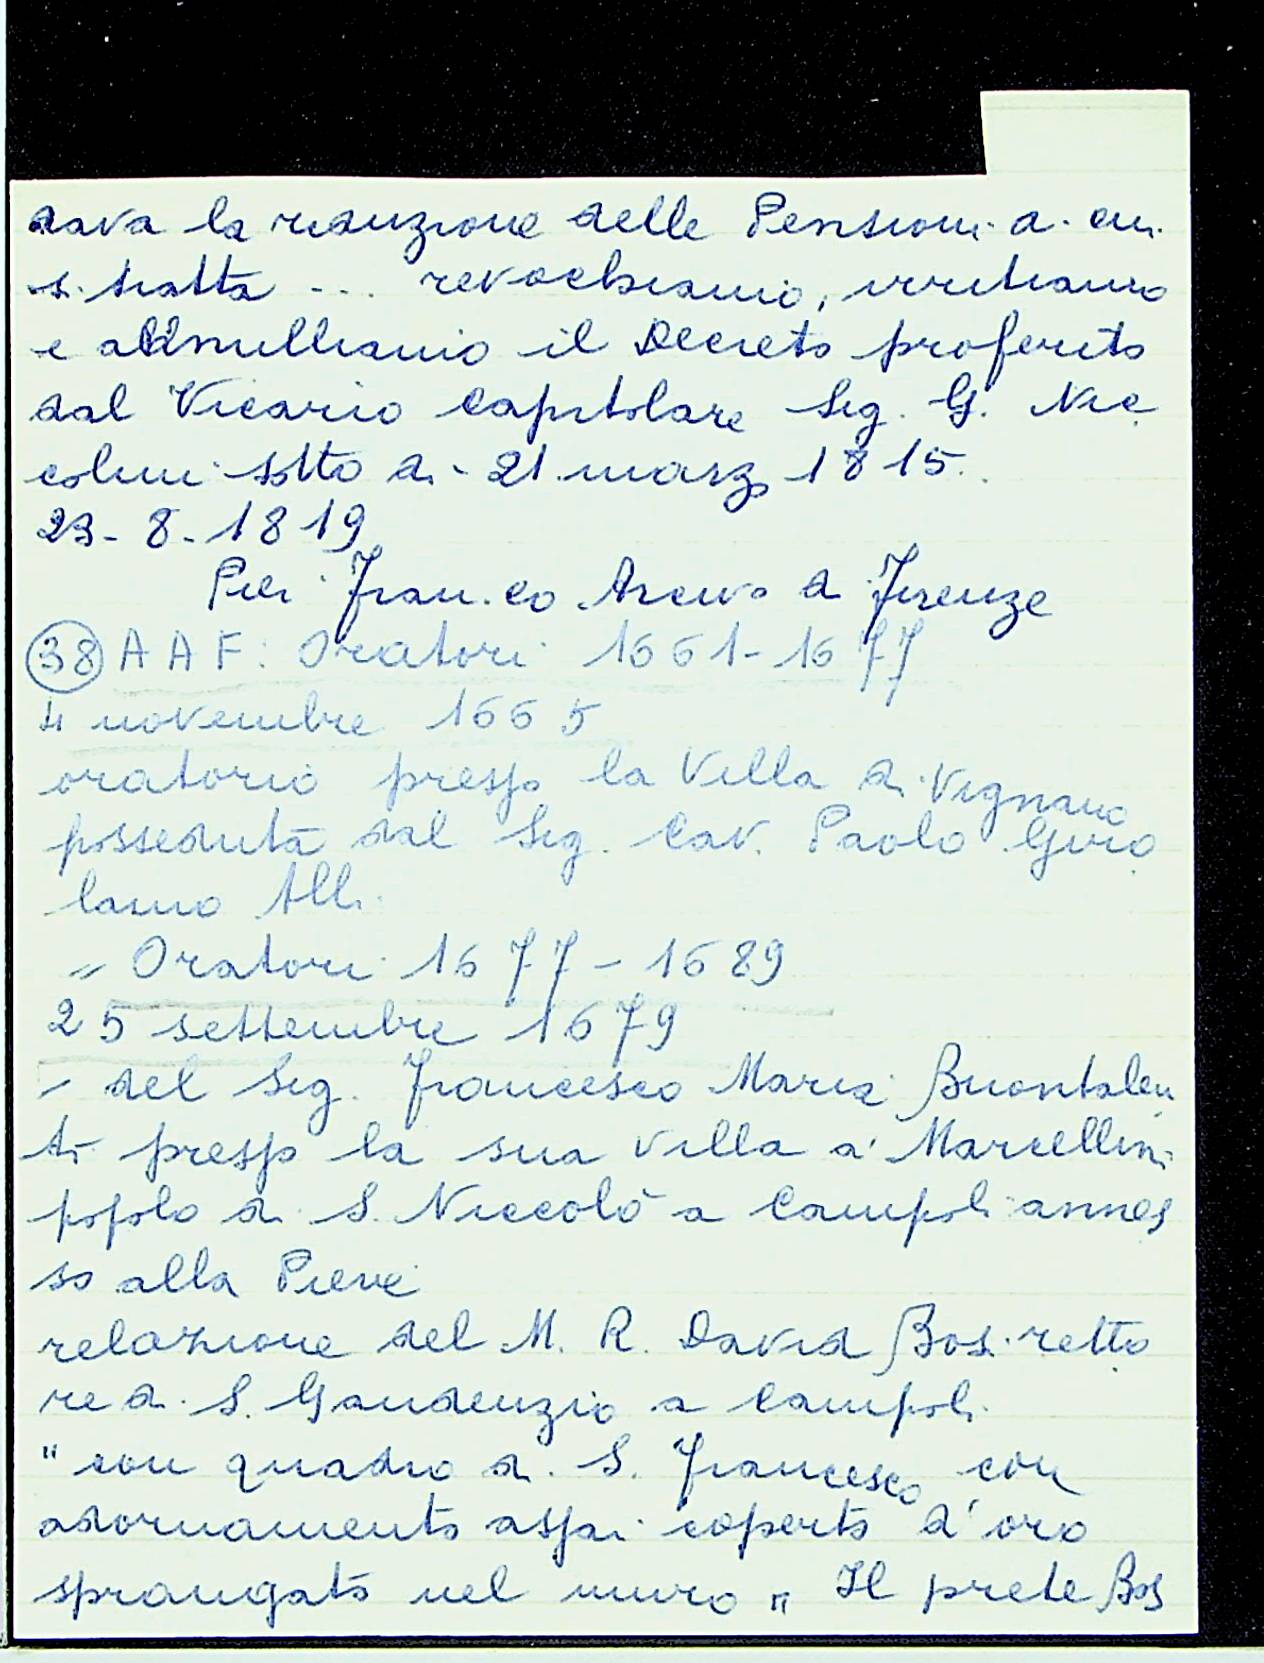 dava la riduzione delle Pensioni di cui
si tratta ... revochiamo, irritiamo
e annulliamo il Decreto proferito
dal Vicario Capitolare Sig. G. Nic
colini sotto di 21 marzo 1815.
23-8-1819
Pier Franco Arcivo di Firenze
(38) AAF: Oratori 1661-1677
4 novembre 1665
oratorio presso la Villa di Vignano
posseduta dal Sig. Cav. Paolo Giro
lamo Alli
" Oratori 1677-1689
25 settembre 1679
- del Sig. Francesco Maria Buontalen
ti presso la sua villa a' Marcellini
popolo di S. Niccolò a Campoli annes
so alla Pieve
relazione del M. R. David Bosi retto
re di S. Gaudenzio a Campoli
"con quadro di S. Francesco con
adornamento assai coperto d'oro
sprangato nel muro" Il prete Bos